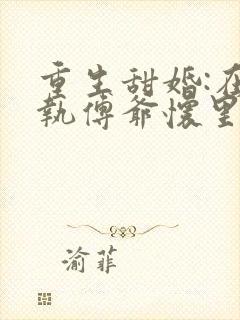 重生甜婚:在
執傅爺懷里
渝菲